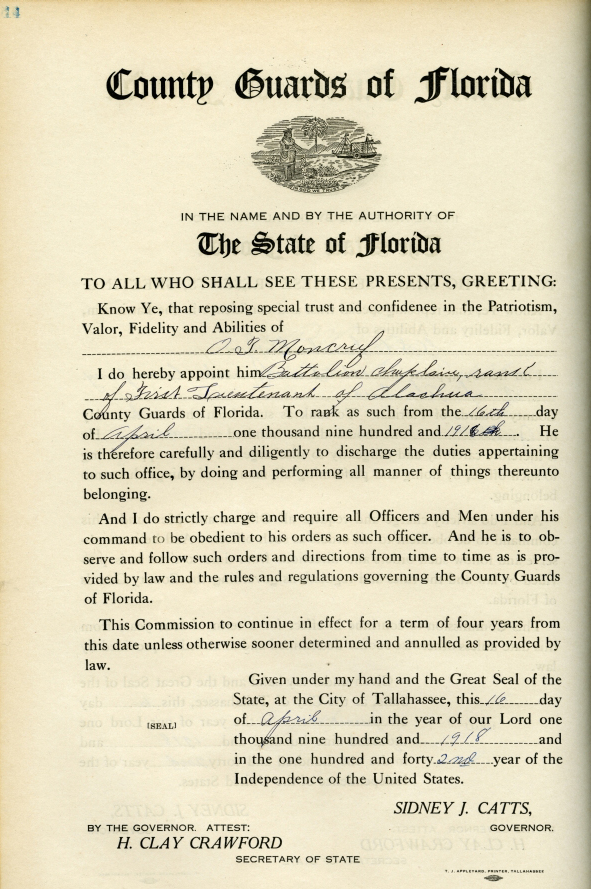 14
County Guards of Florida
IN THE NAME AND BY THE AUTHORITY OF
The State of Florida
TO ALL WHO SHALL SEE THESE PRESENTS, GREETING:
Know Ye, that reposing special trust and confidence in the Patriotism,
Valor, Fidelity and Abilities of
O. F. Moncrief
I do hereby appoint him Battalion Chaplain, rank
of First Lieutenant of Alachua
County Guards of Florida. To rank as such from the 16th day
of April one thousand nine hundred and 1918. He
is therefore carefully and diligently to discharge the duties appertaining
to such office, by doing and performing all manner of things thereunto
belonging.
And I do strictly charge and require all Officers and Men under his
command to be obedient to his orders as such officer. And he is to ob-
serve and follow such orders and directions from time to time as is pro-
vided by law and the rules and regulations governing the County Guards
of Florida.
This Commission to continue in effect for a term of four years from
this date unless otherwise sooner determined and annulled as provided by
law.
Given under my hand and the Great Seal of the
State, at the City of Tallahassee, this 16 day
of April in the year of our Lord one
[SEAL]
thousand nine hundred and 1918 and
in the one hundred and forty 2nd year of the
Independence of the United States.
SIDNEY J. CATTS,
GOVERNOR.
BY THE GOVERNOR. ATTEST:
H. CLAY CRAWFORD
SECRETARY OF STATE
T. J. APPLEYARD, PRINTER, TALLAHASSEE